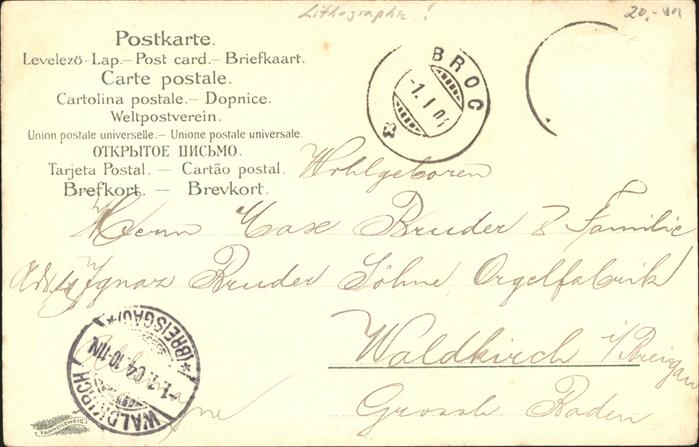 Lithographie!
20,-
Postkarte.
Levelező-Lap.— Post card.— Briefkaart.
Carte postale.
Cartolina postale.— Dopnice.
Weltpostverein.
Union postale universelle.— Unione postale universale.
ОТКРЫТОЕ ПИСЬМО.
Tarjeta Postal. — Cartão postal.
Brefkort. — Brevkort.
BROC
Wohlgeboren
Herrn Max Bruder & Familie
Ignaz Bruder Söhne Orgelfabrik
Waldkirch i/Breisgau
Grossh Baden
WALDKIRCH
10-11N
*(BREISGAU)*
TANNENZWEIG